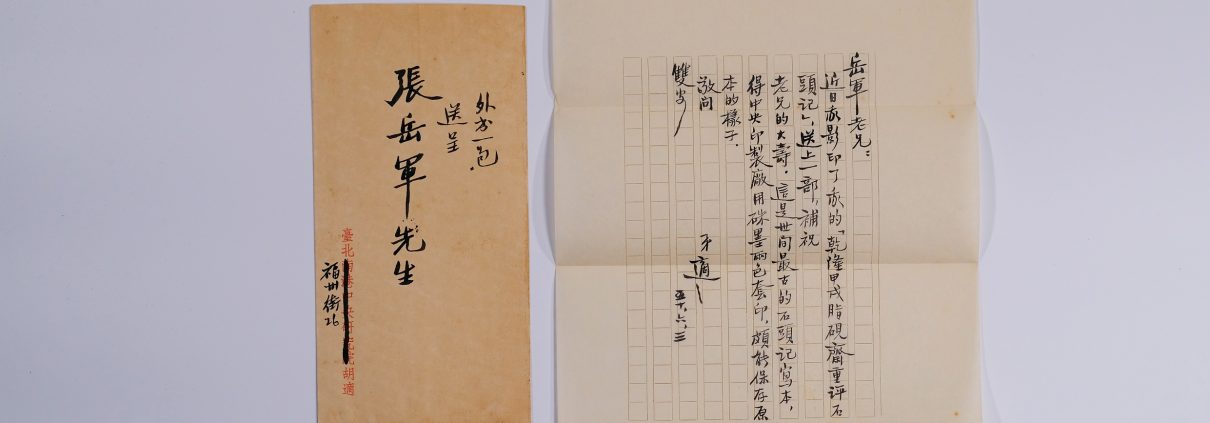 外書一包
送呈
張岳軍先生
臺北南港中央研究院胡適
福州街26
岳軍老兄：
近日我影印了我的「乾隆甲戌脂硯齋重評石
頭記」，送上一部，補祝
老兄的大壽．這是世间最古的石頭記寫本，
得中央印製廠用硃墨兩色套印，頗能保存原
本的樣子．
敬问
雙安
弟適
五十，六，三